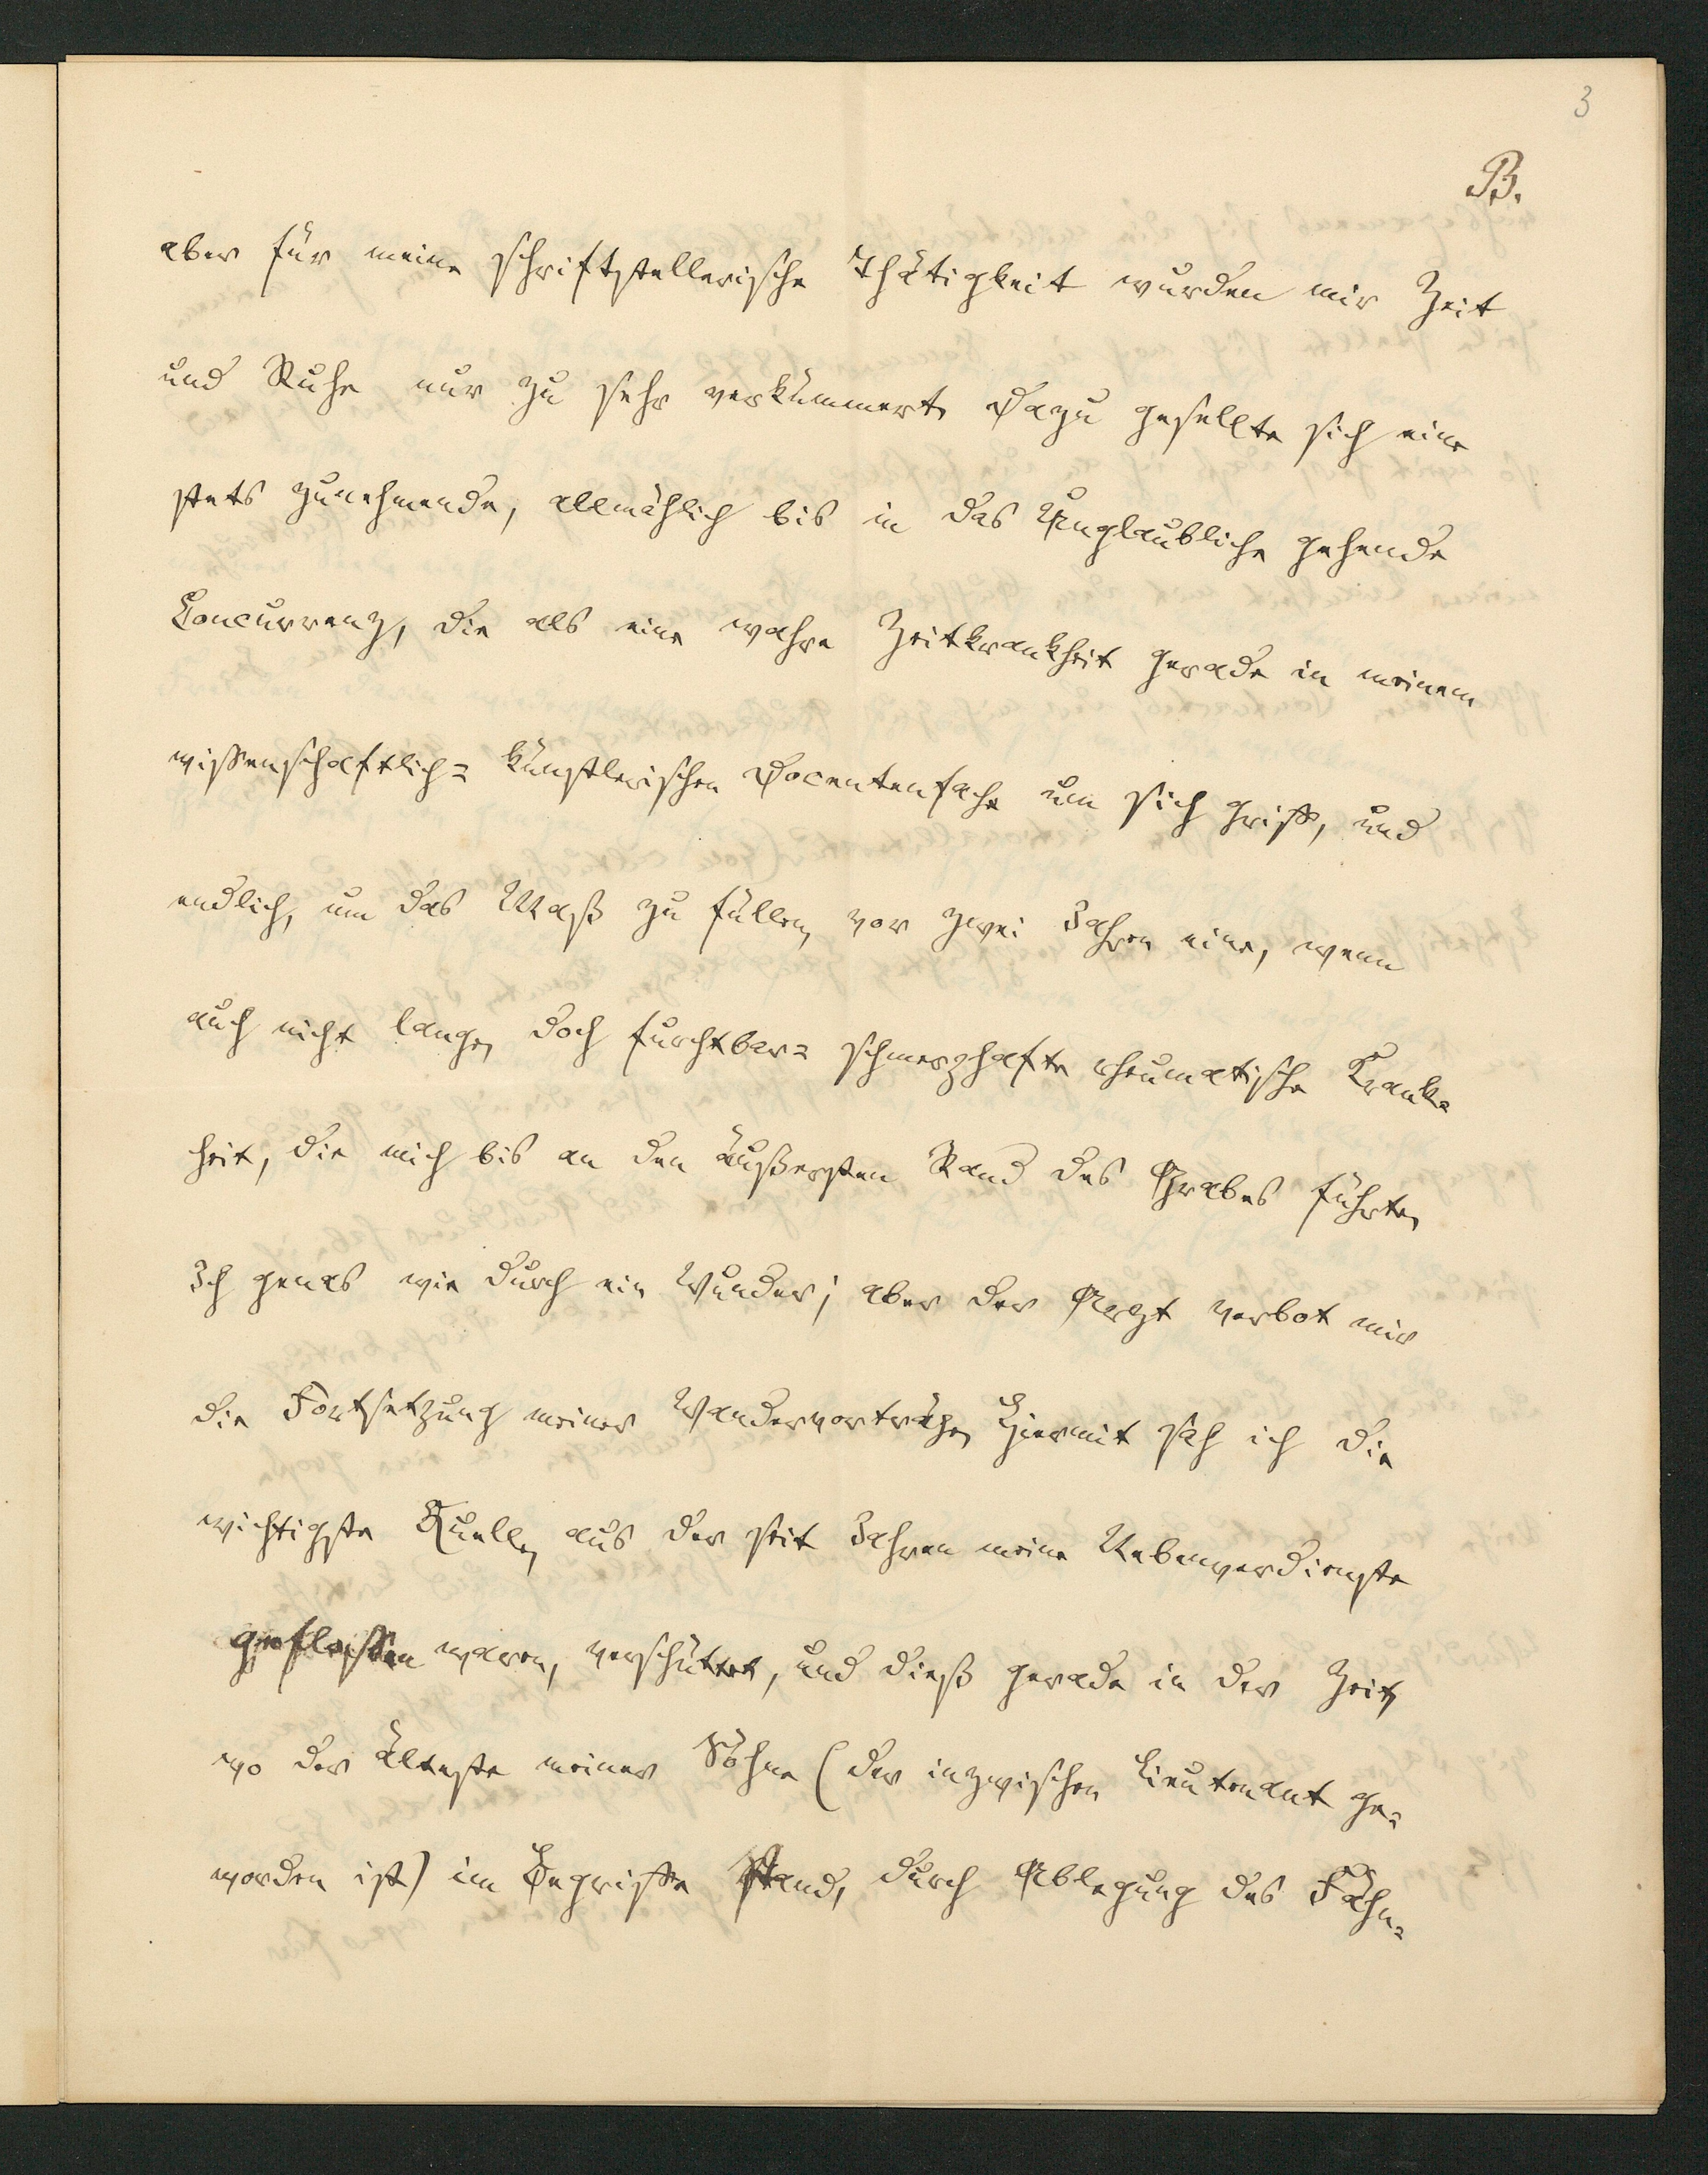 3
B.
aber für meine schriftstellerische Thätigkeit wurden mir Zeit
und Ruhe nur zu sehr verkümmert. Dazu gesellte sich eine
stets zunehmende, allmählich bis in das Unglaubliche gehende
Concurrenz, die als eine wahre Zeitkrankheit gerade in meinem
wissenschaftlich= künstlerischen Docentenfache um sich griff, und
endlich, um das Maß zu füllen, vor zwei Jahren eine, wenn
auch nicht lange, doch furchtbar= schmerzhafte rheumatische Krank=
heit, die mich bis an den äußersten Rand des Grabes führte.
Ich genas wie durch ein Wunder; aber der Arzt verbot mir
die Fortsetzung meiner Wandervorträge. Hiermit sah ich die
wichtigste Quelle, aus der seit Jahren meine Nebenverdienste
geflossen waren, verschüttet, und dieß gerade in der Zeit,
wo der älteste meiner Söhne (der inzwischen Lieutenant ge=
worden ist) im Begriffe stand, durch Ablegung des Fähn=